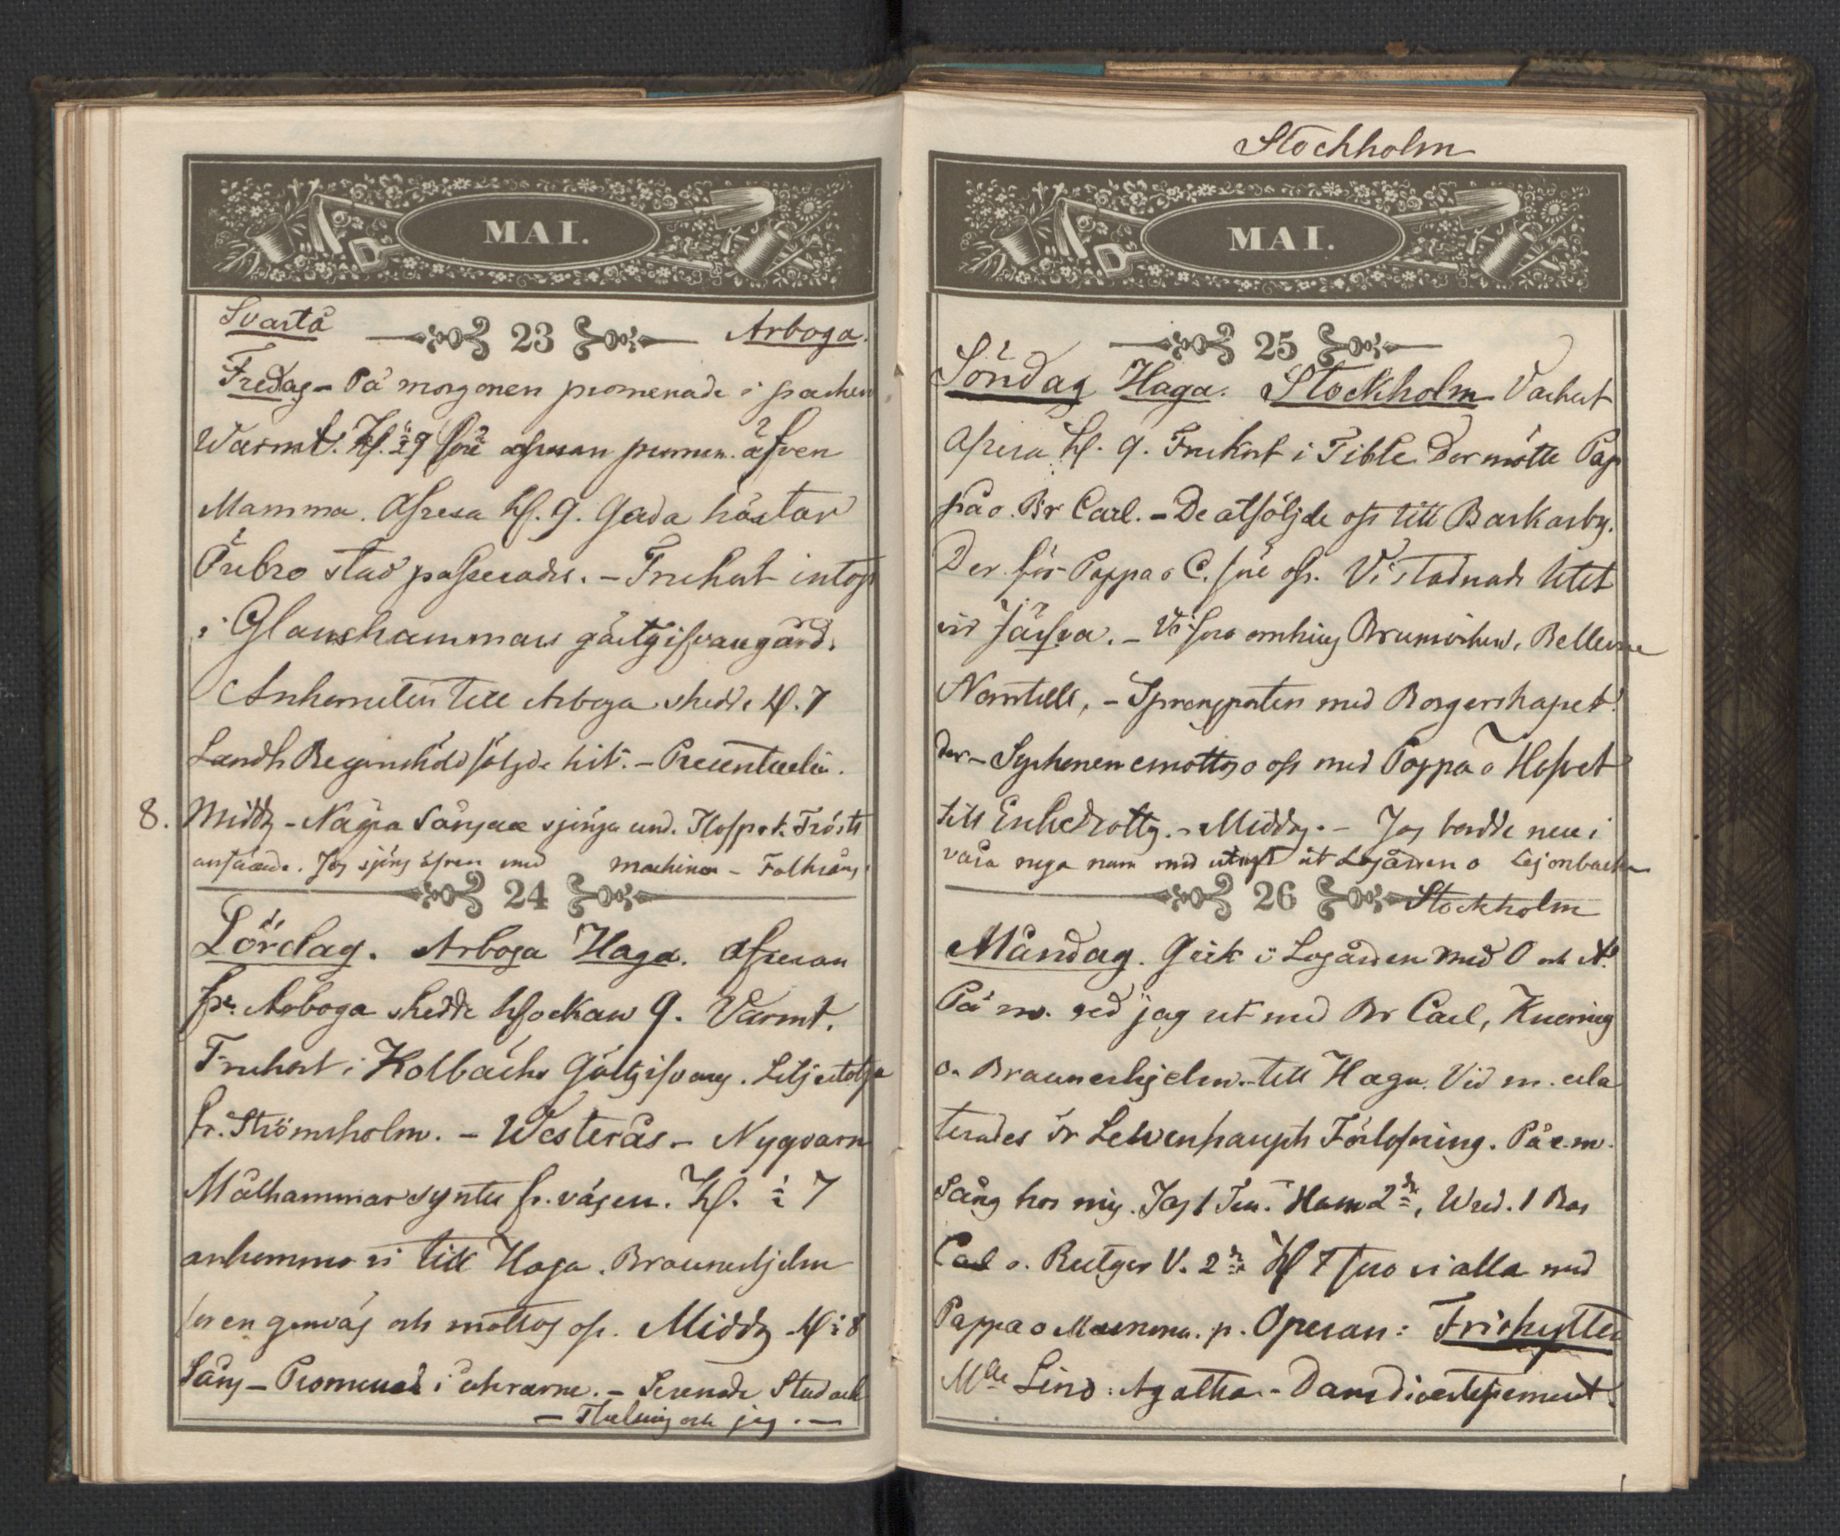 MAI.
Svartå 23 Arboga.
Fredag – På morgonen promenade i parken
Warmt. Kl. ½ 9 före afresan äfven
Mamma. Afresa kl. 9. Goda hästar
Örebro stad passerades. – Frukost intogs
i Glanshammars gästgifvaregård.
Ankomsten till Arboga skedde kl. 7
Landh följde hit. –
8. Middg – Några Sångare sjönga und.
anförande. Jag sjöng äfven med – Folksång.
24
Lördag. Arboga Haga. Afresan
fr. Arboga skedde klockan 9. Varmt.
Frukost i Kolbäcks Gästgifvareg.
fr. Strömsholm. – Westerås. – Nyqvarn
Målhammar syntes fr. vägen. Kl. ½ 7
ankommo vi till Haga. Braunerhjelm
for en genväg och mottog oss. Middg kl ½ 8
Sång – Promenad i åkrarne. – Serenade
– och jag. –
Stockholm
MAI.
25
Söndag Haga. Stockholm Vackert
Afresa kl. 9. Frukost i Tible Der mötte Pap
pa o. Br Carl. – De åtföljde oss till Barkarby.
Der för Pappa o C. före oss. Vi stadnade litet
vid Järfva. – Vi foro omkring Brunnsviken, Bellevue
Norrtull, – med Borgerskapet
der – emottog oss med Pappa o Hofvet
till Enkedrottg. – Middg. – Jag bodde nere i
våra nya rum med utsigt åt Logården o Lejonbacken
26 Stockholm
Måndag. Gick i Logården med O och A.
På m. red jag ut med Br Carl, Knorring
o. Braunerhjelm till Haga. Vid m. ecla
terades Gr Lewenhaupts Förlofning. På e.m.
Sång hos mig. Jag 1 Ten. Ham 2dre, Wred. 1 Bas
Carl o. Rutger V. 2dre Kl 7 foro vi alla med
Pappa o Mamma. p. Operan: Friskytten
Mlle Lind: Agatha – Dansdivertissement.